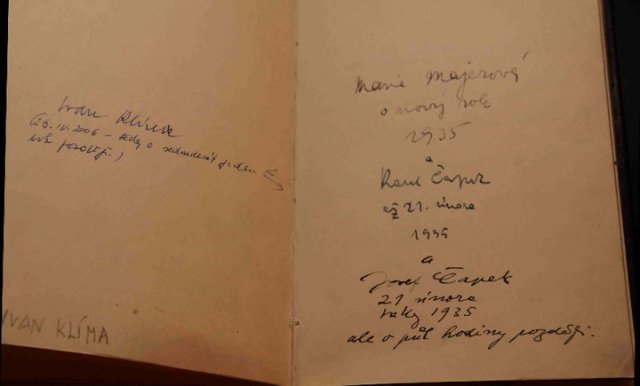 Ivan Klíma
(26. IV. 2006 – tedy o sedmdesát jeden
rok později.)
IVAN KLÍMA
Marie Majerová
o nový rok
1935
a
Karel Čapek
až 21. února
1935
a
Josef Čapek
21 února
taky 1935
ale o půl hodiny později.